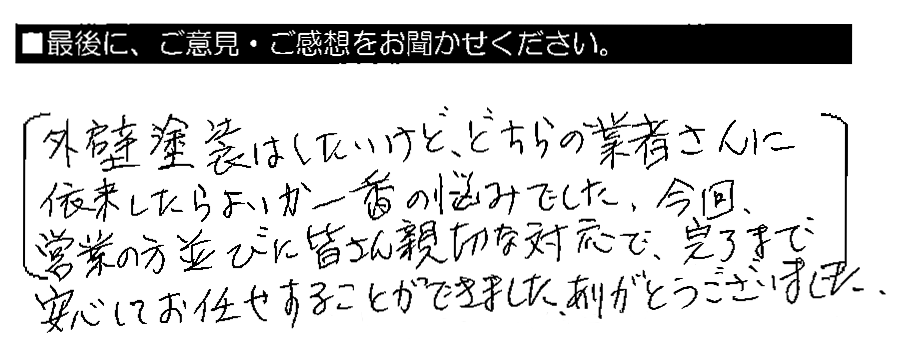 ■最後に、ご意見・ご感想をお聞かせください。
外壁塗装はしたいけど、どちらの業者さんに
依来したらよいか一番の悩みでした。今回、
営業の方並びに皆さん親切な対応で、完了まで
安心してお任せすることができました。ありがとうございました。